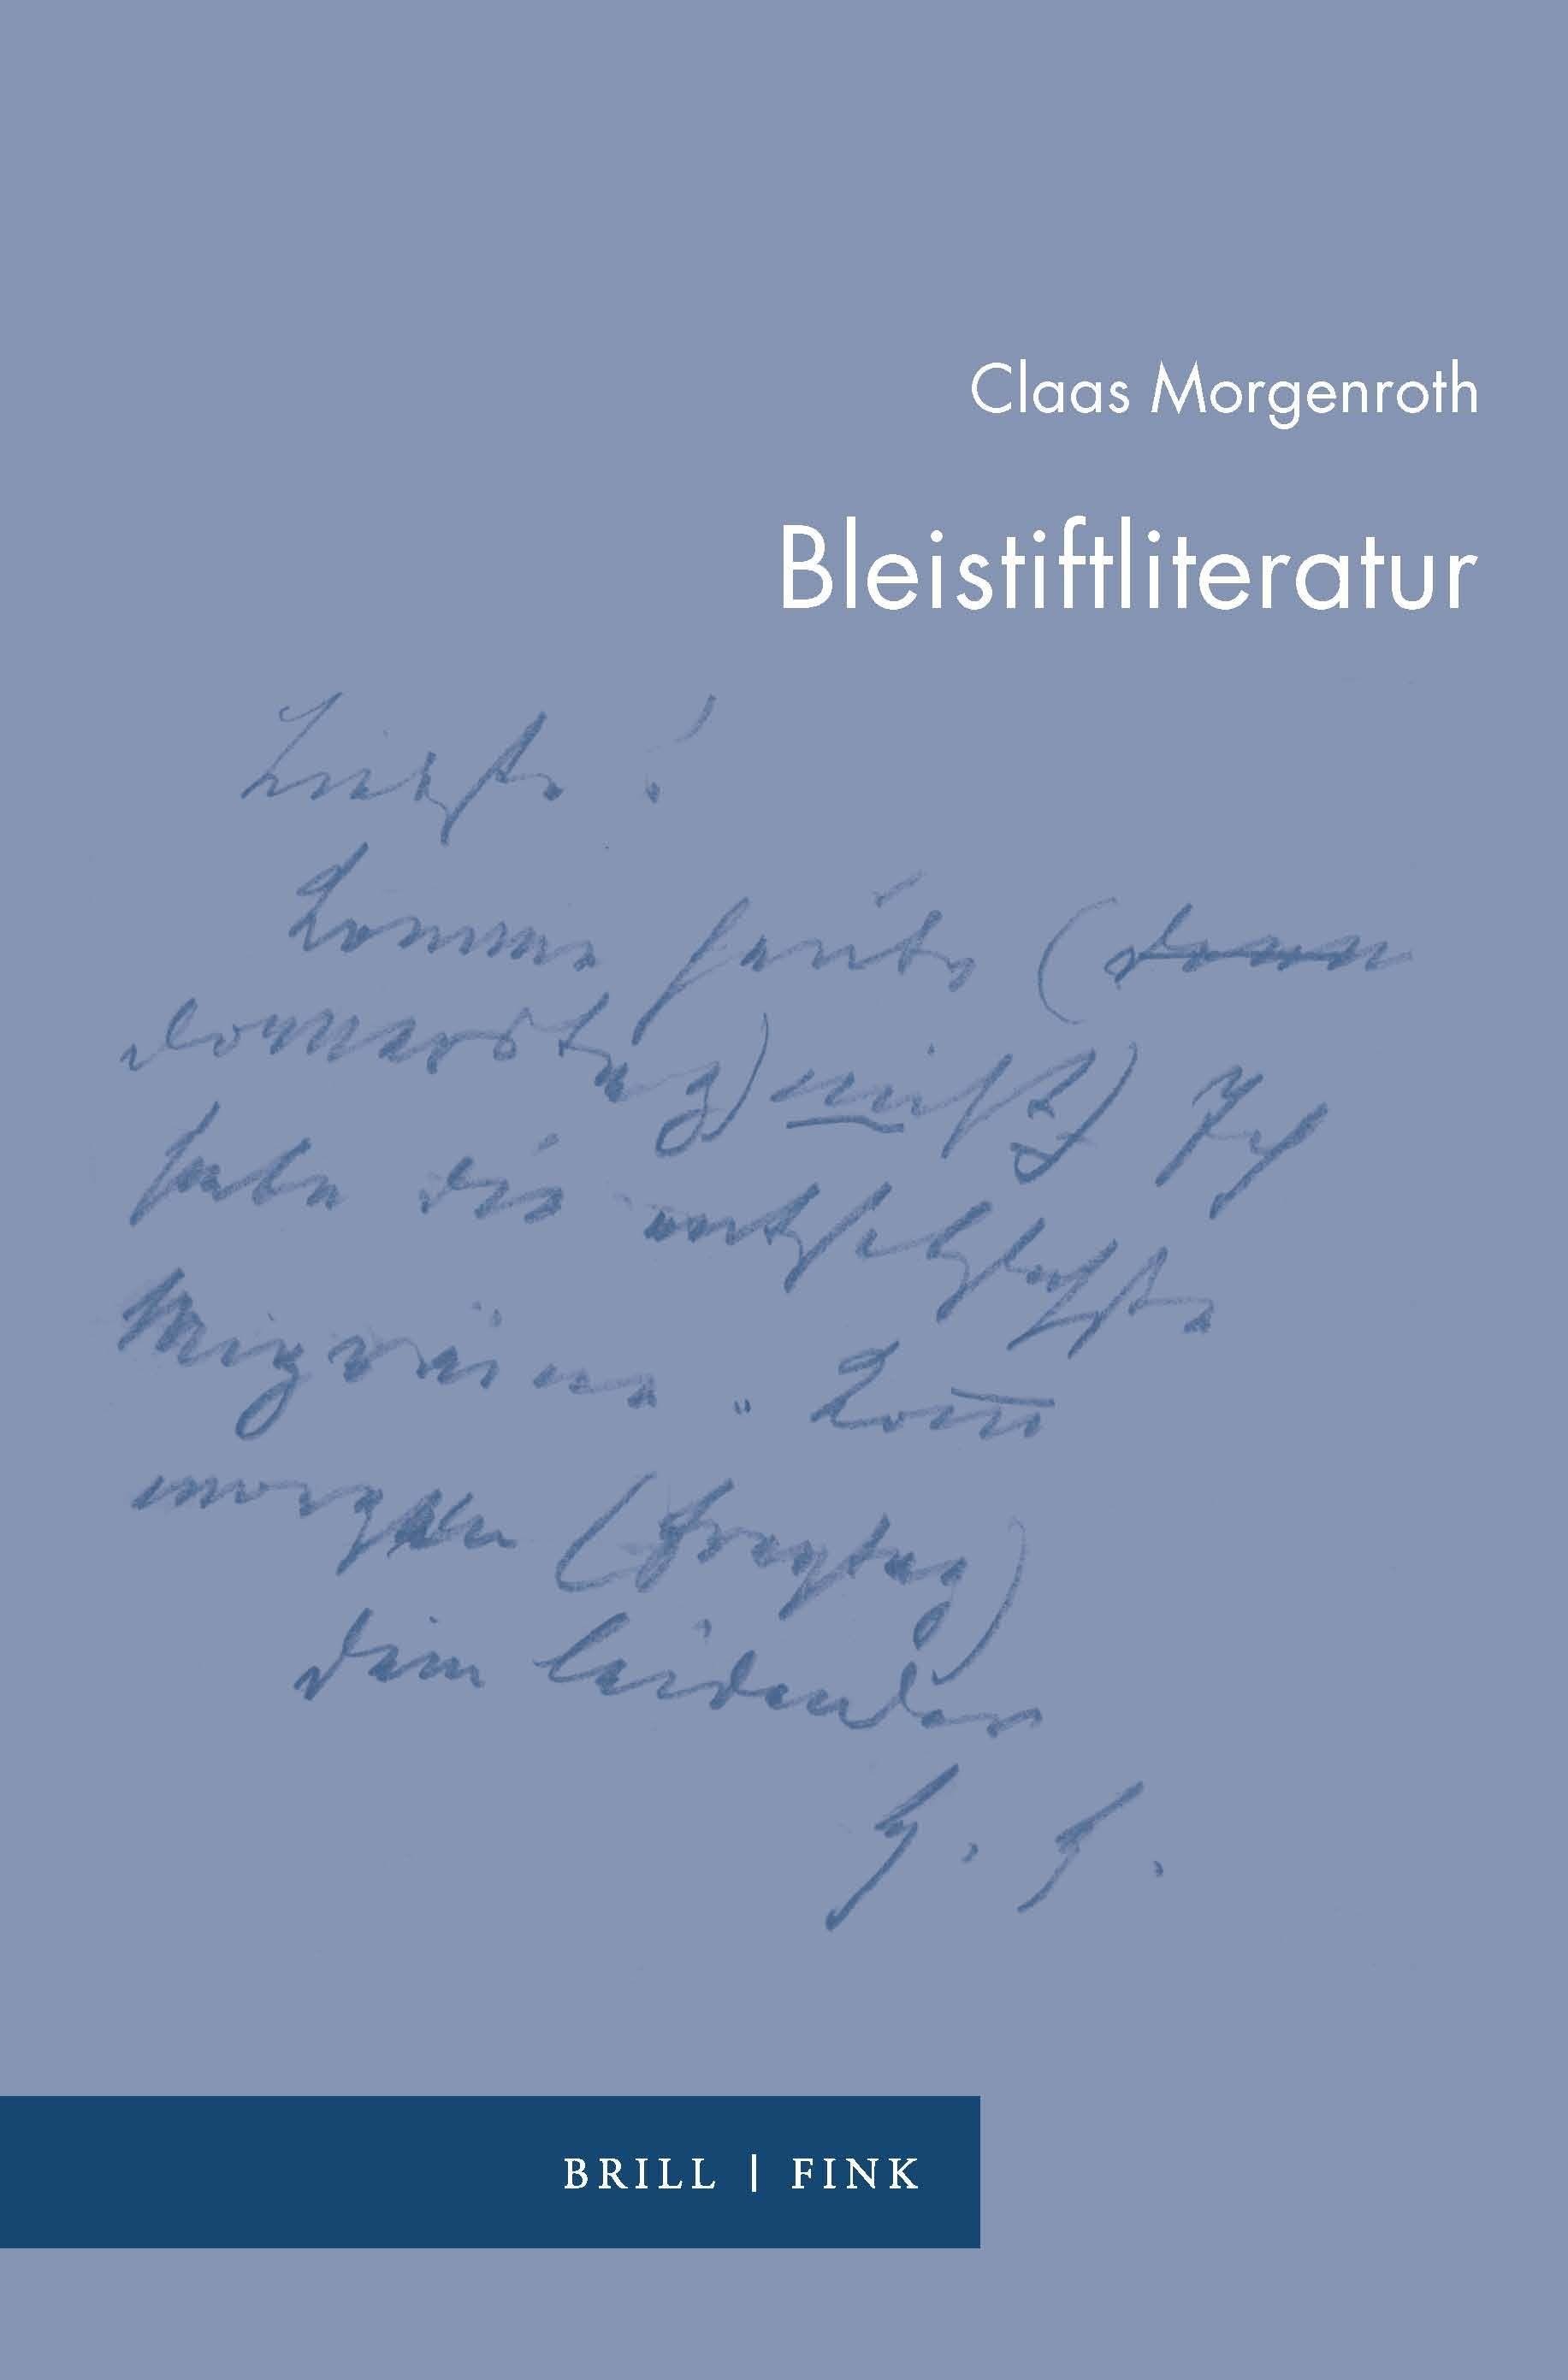 Claas Morgenroth
Bleistiftliteratur
Liebste!
Komme heute (denn
donnerstag) nicht) Ich
habe die entsetzlichste
Migraine. Kom̅
morgen (Freytag)
Dein leidender
H. H.
BRILL | FINK